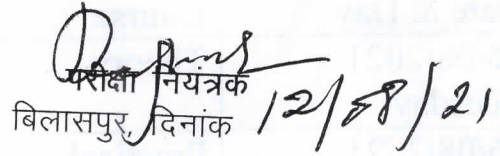 परीक्षा नियंत्रक
बिलासपुर, दिनांक 12/08/21